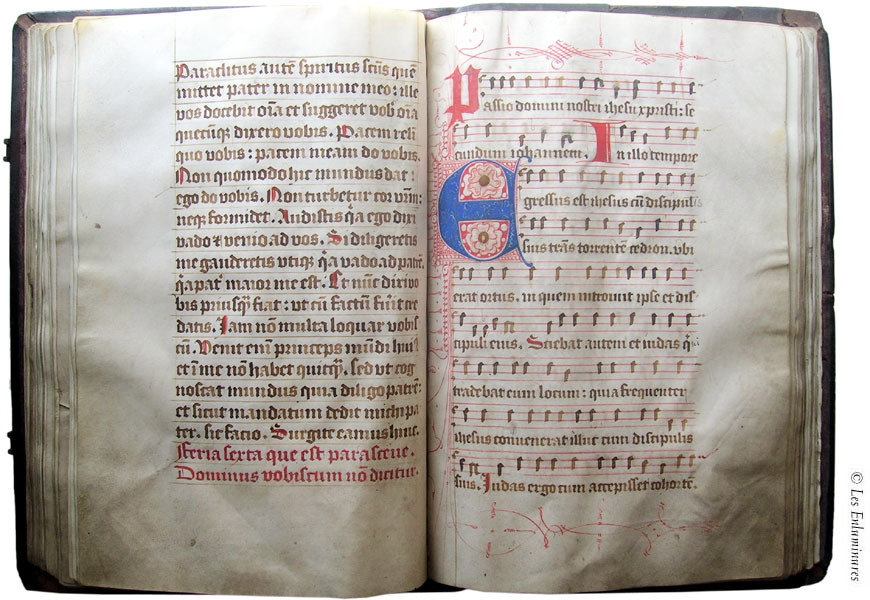 Paraclitus autē spiritus scūs quē
mittet pater in nomine meo: ille
vos docebit oīa et suggeret vob oīa
quecūq̄ dixero vobis. Pacem reli
quo vobis: pacem meam do vobis.
Non quomodo hic mundus dat:
ego do vobis. Non turbetur cor vr̄m:
neq̄ formidet. Audistis q̄a ego dixi
vado et venio ad vos. Si diligeretis
me gauderetis vtiq̄ q̄a vado ad patrē.
q̄a pat maior me est. Et nūc dixi vo
bis priusq̄ fiat: vt cū factū fuīt cre
datis. Iam nō multa loquar vobis
cū. Venit enī princeps mūdi hui
et ī me nō habet quicq̄. sed vt cog
noscat mundus quia diligo patrē:
et sicut mandatum dedit michi pa
ter. sic facio. Surgite eamus hinc.
Feria sexta que est parasceue.
Dominus vobiscum nō dicitur.
Passio domini nostri ihesu xpisti: se
cundum iohannem. In illo tempore
Egressus est ihesus cū discipulis
suis trās torrentē cedron. vbi
erat ortus. in quem introiuit ipse et dis
cipuli eius. Sciebat autem et iudas q̄
tradebat eum locum: quia frequenter
ihesus conuenerat illuc cum discipulis
suis. Iudas ergo cum accepisset cohortē.
© Les Enluminures